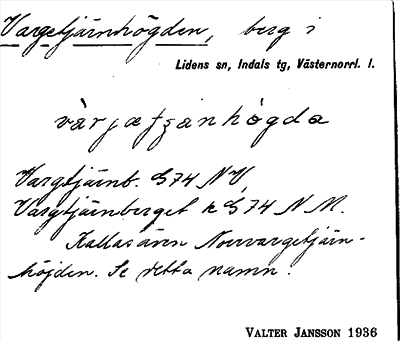 Vargetjärnhögden, berg i
Lidens sn, Indals tg, Västernorrl. l.
Vargtjärnb. G74 NV,
Vargtjärnberget k G74 N M.
Kallas även Norrvargetjärn-
höjden. Se detta namn.
VALTER JANSSON 1936